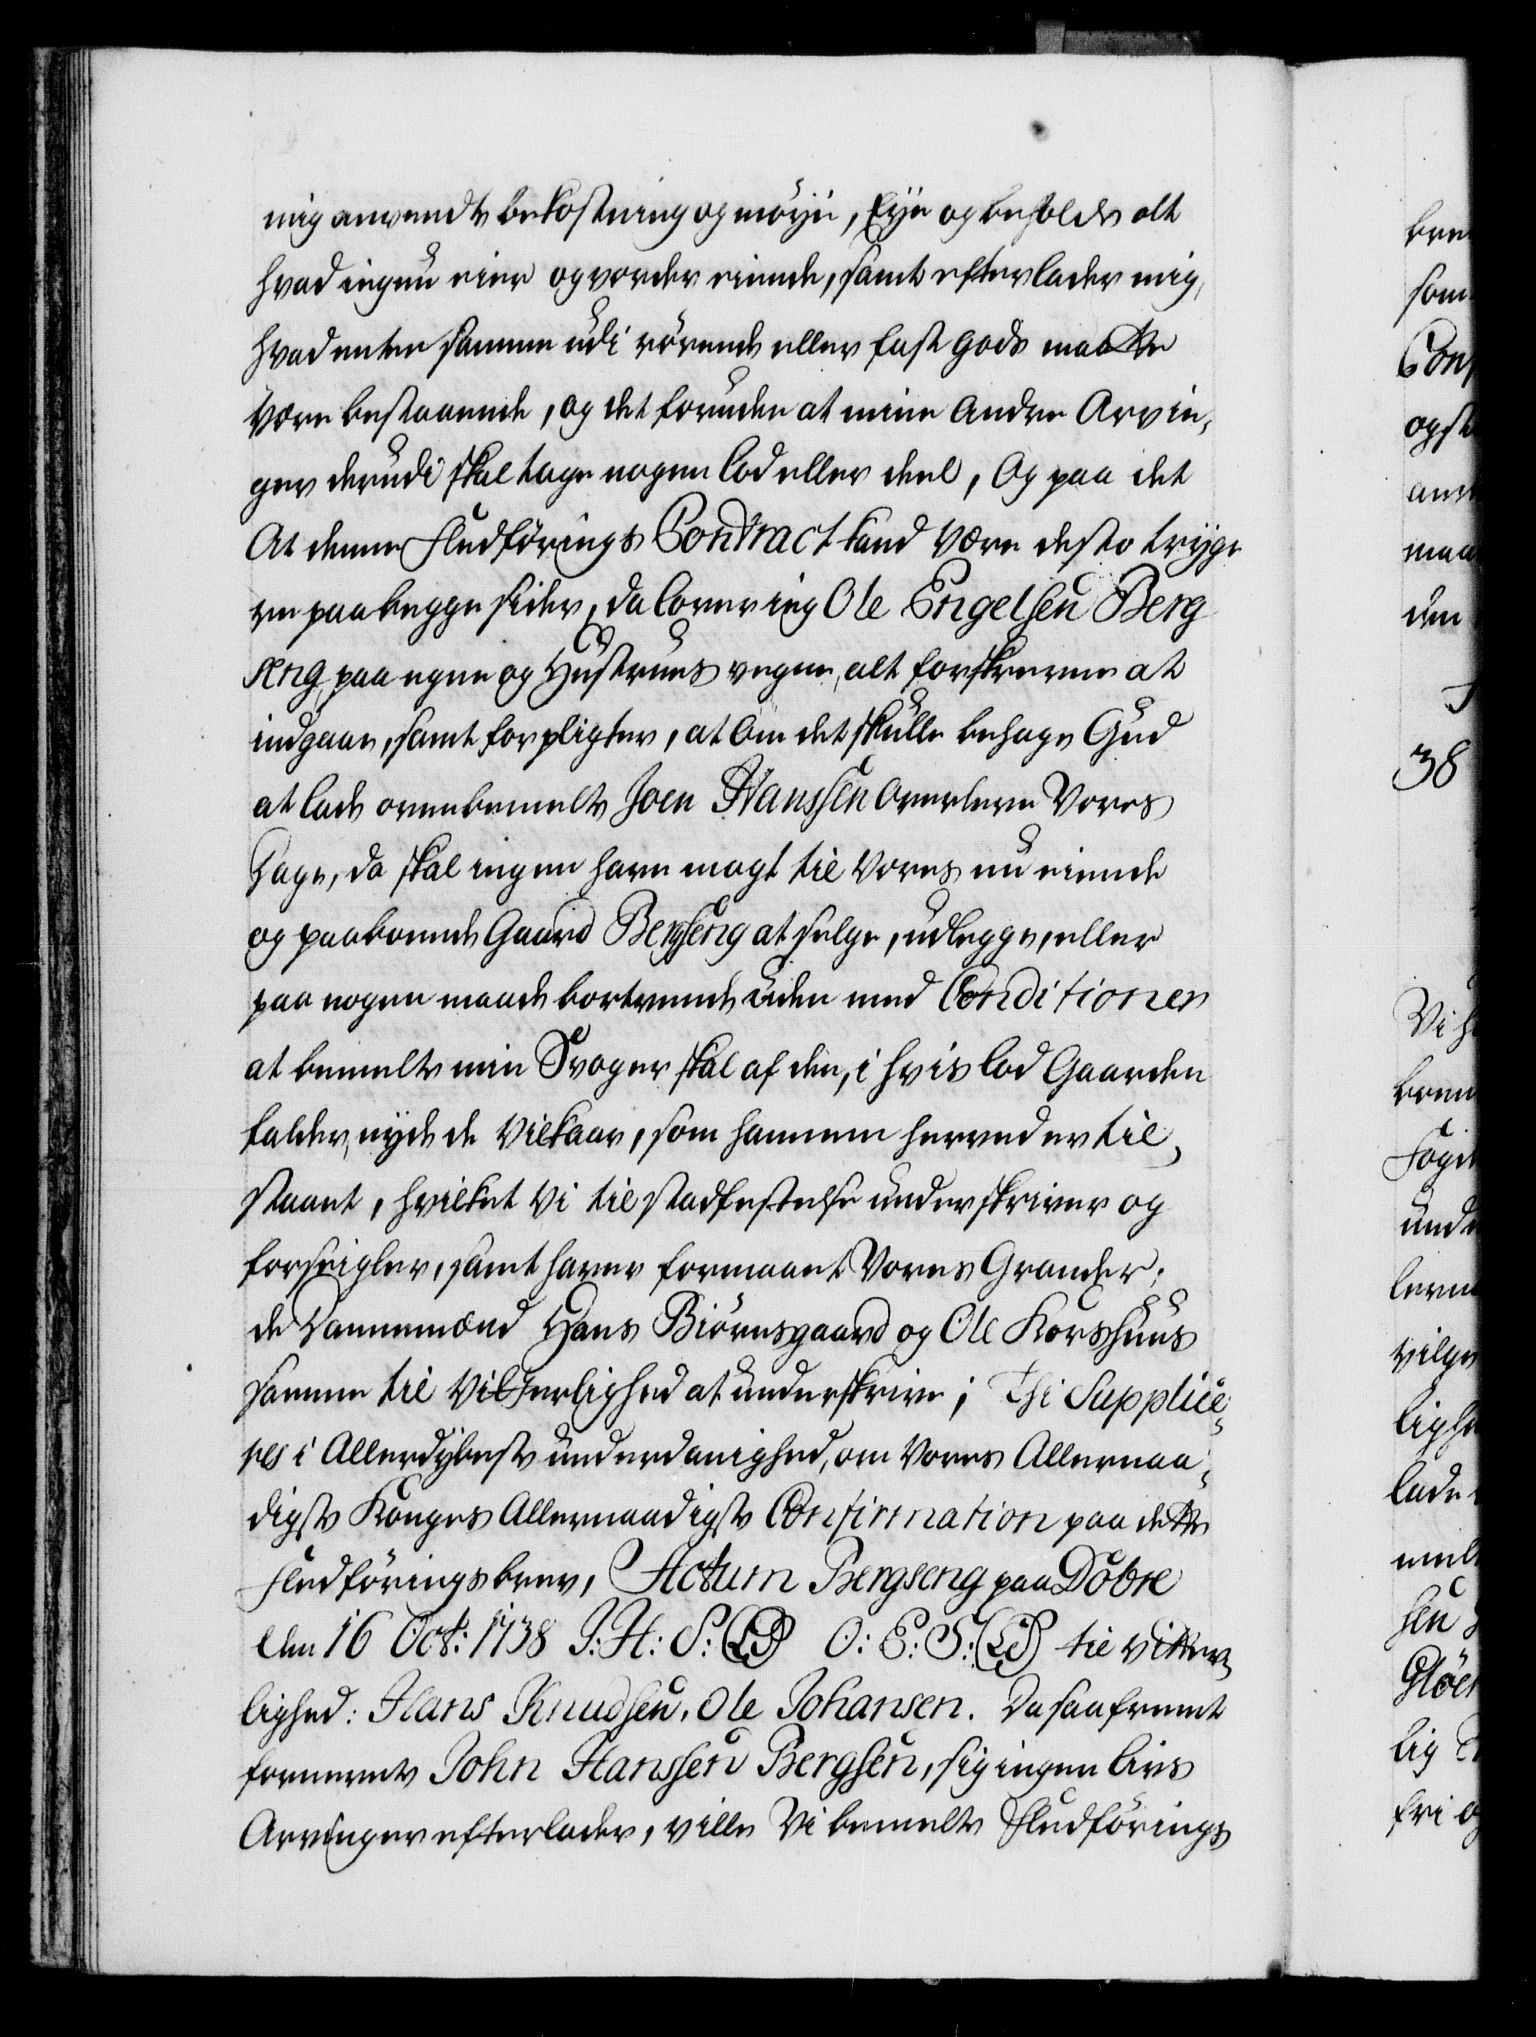 mig anvendte bekostning og möyie, Eyie og beholde alt
hvad ieg nu eier og vorder eiende, samt efterlader mig,
hvad enten samme udi rörende eller fast gods maatte
være bestaaende, og det foruden at mine andre Arvin,
ger derudi skal tage nogen lod eller deel, Og paa det
At denne Fledförings Contract kand være desto tryge
re paa begge sider, da lover ieg Ole Engelsen Berg
seng, paa egne og Hustrues vegne, alt forskrevne at
indgaae, samt forpligter, at om det skulle behage Gud
at lade ovenbemelte Joen Hanssen overleve Vores
Dage, da skal ingen have magt til Vores nu eiende
og paaboende Gaard Bergseng at selge, udlegge, eller
paa nogen maade bortvende uden med Conditioner
at bemelte min Svoger skal af den, i hvis lod Gaarden
falder, nyde de vilkaar, som hannem herved er til,
staaet, hvilket Vi til stadfestelse underskriver og
forseigler, samt haver formaaet Vores Grander,
de Dannemænd Hans Biörnsgaard og Ole Korshuus
samme til Vitterlighed at underskrive; Thi Supplice,
res i Allerdybeste underdanighed, om Vores Allernaa,
digste Konges Allernaadigste Confirmation paa dette
Fledförings brev, Actum Bergseng paa Dobre
den 16 Oct: 1738 J: H: S: (LS) O: E: S: (LS) til vitter,
lighed: Hans Knudsen, Ole Johansen. Da saafremt
fornevnte John Hanssen Bergsen, sig ingen Livs
Arvinger efterlader, ville Vi bemelte Fledförings